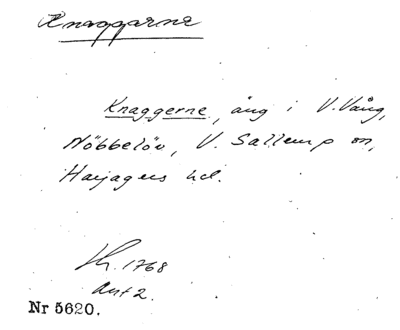 Knaggarne
Knaggerne, äng i V. Vång,
Nöbbelöv, V. Sallerup sn,
Harjagers hd.
Lh. 1768
Akt 2.
Nr 5620.